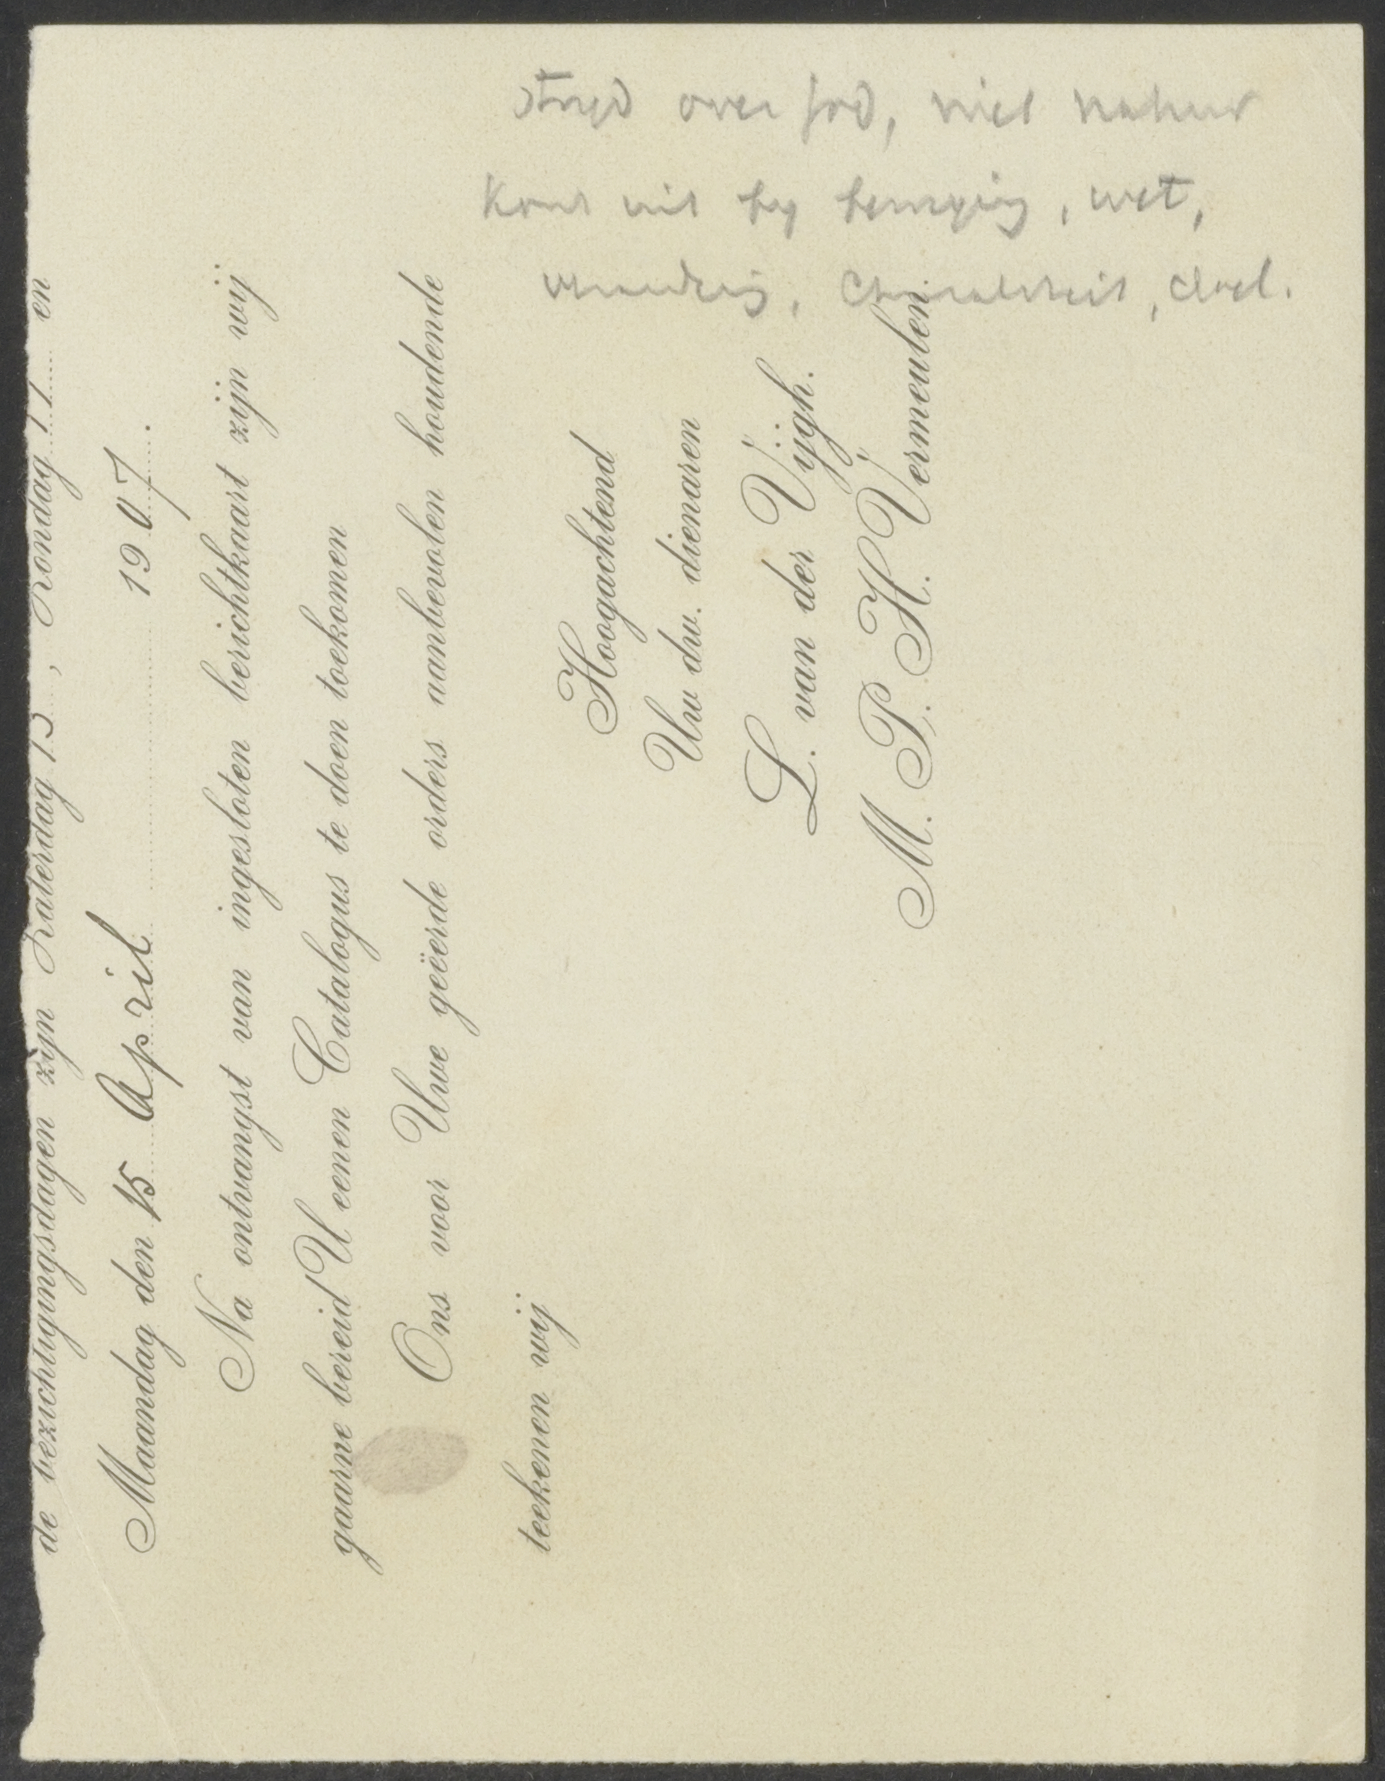 strijd over God, niet natuur
komt uit bij beweging, wet,
verandering, Causaliteit, doel.
de bezichtigingsdagen zijn Zaterdag 13, Zondag en
Maandag den 15 April 1907.
Na ontvangst van ingesloten berichtkaart zijn wij
gaarne bereid U eenen Catalogus te doen toekomen
Ons voor Uwe geëerde orders aanbevolen houdende
teekenen wij
Hoogachtend
Uw dw. dienaren
L. van der Vijgh.
M. P. H. Vermeulen.